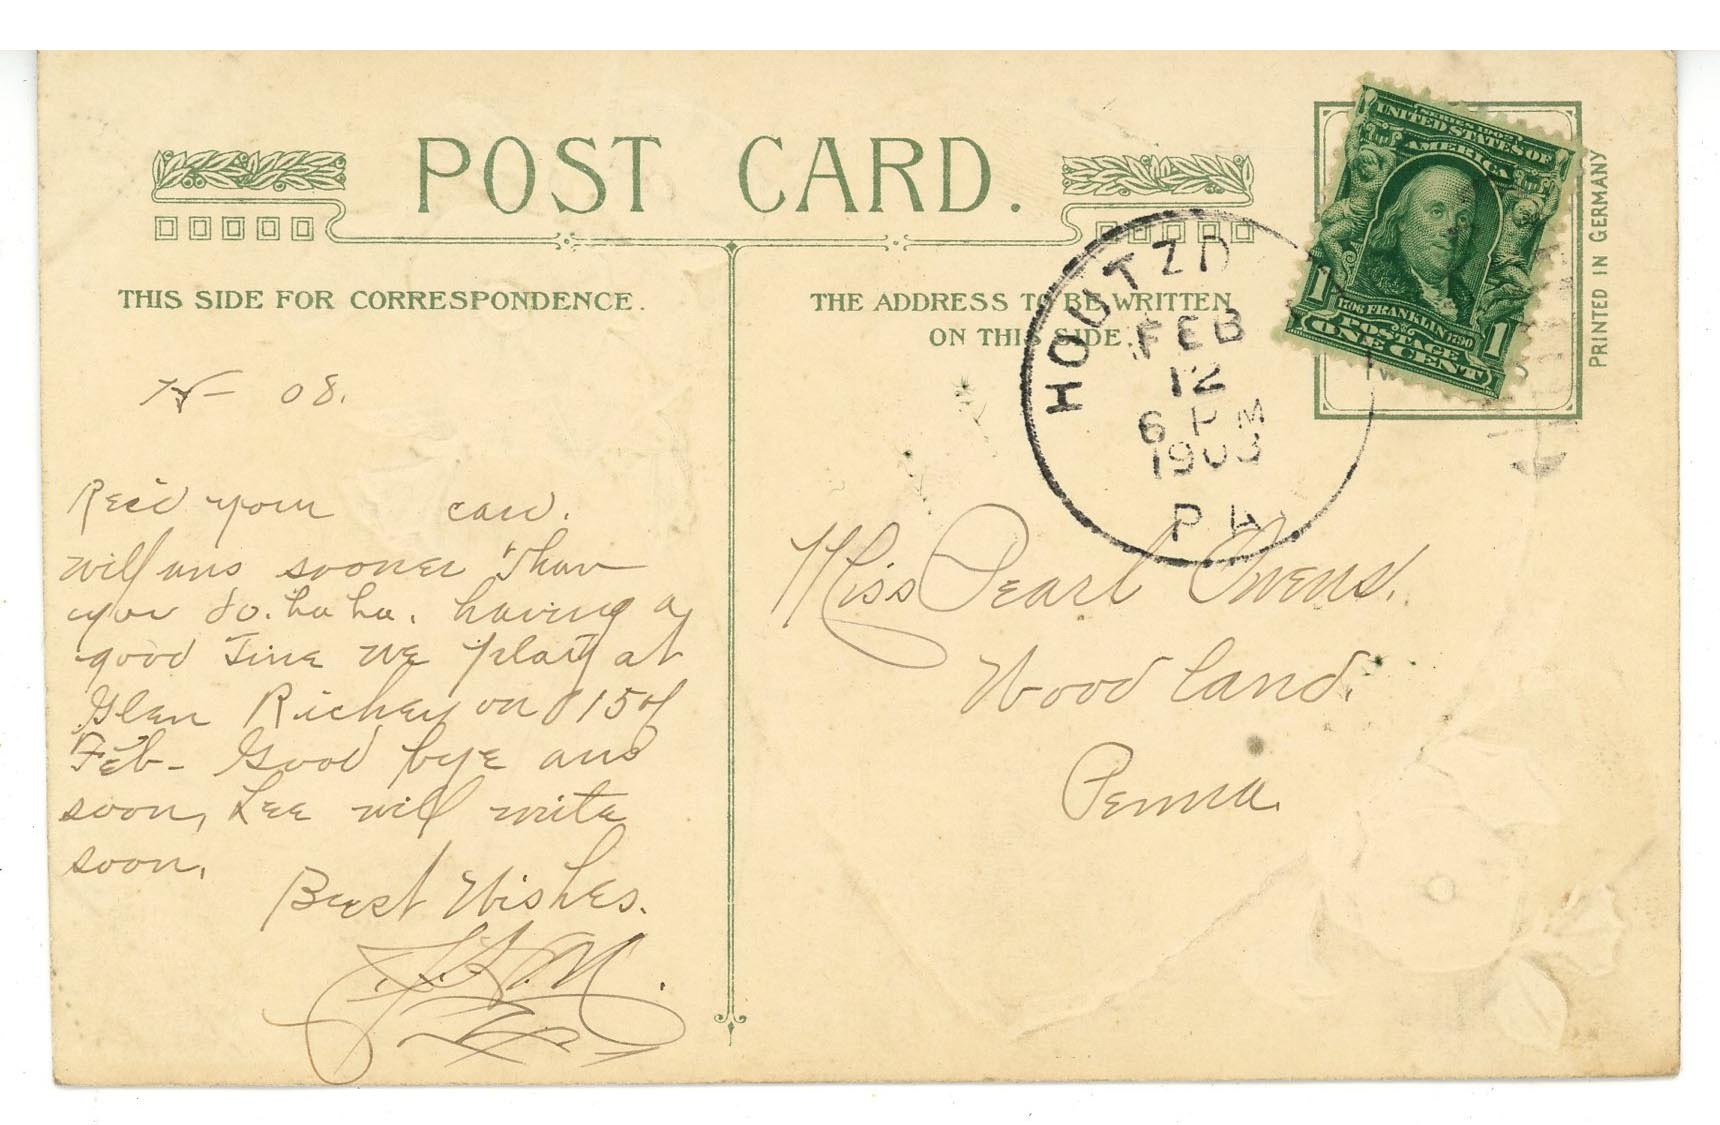 POST CARD.
THIS SIDE FOR CORRESPONDENCE.
THE ADDRESS TO BE WRITTEN
ON THIS SIDE.
PRINTED IN GERMANY
SERIES 1902
UNITED STATES OF
AMERICA
1708 FRANKLIN 1790
1 POSTAGE 1
ONE CENT
HOUTZD
FEB
12
6 PM
1908
PA.
08.
Rec'd your card.
will ans sooner than
you do. ha ha. having a
good time we play at
Glen Richey on 15 of
Feb - Good bye and
soon, Lee will write
soon.
Best Wishes.
Miss Pearl Owens.
Woodland.
Penna.